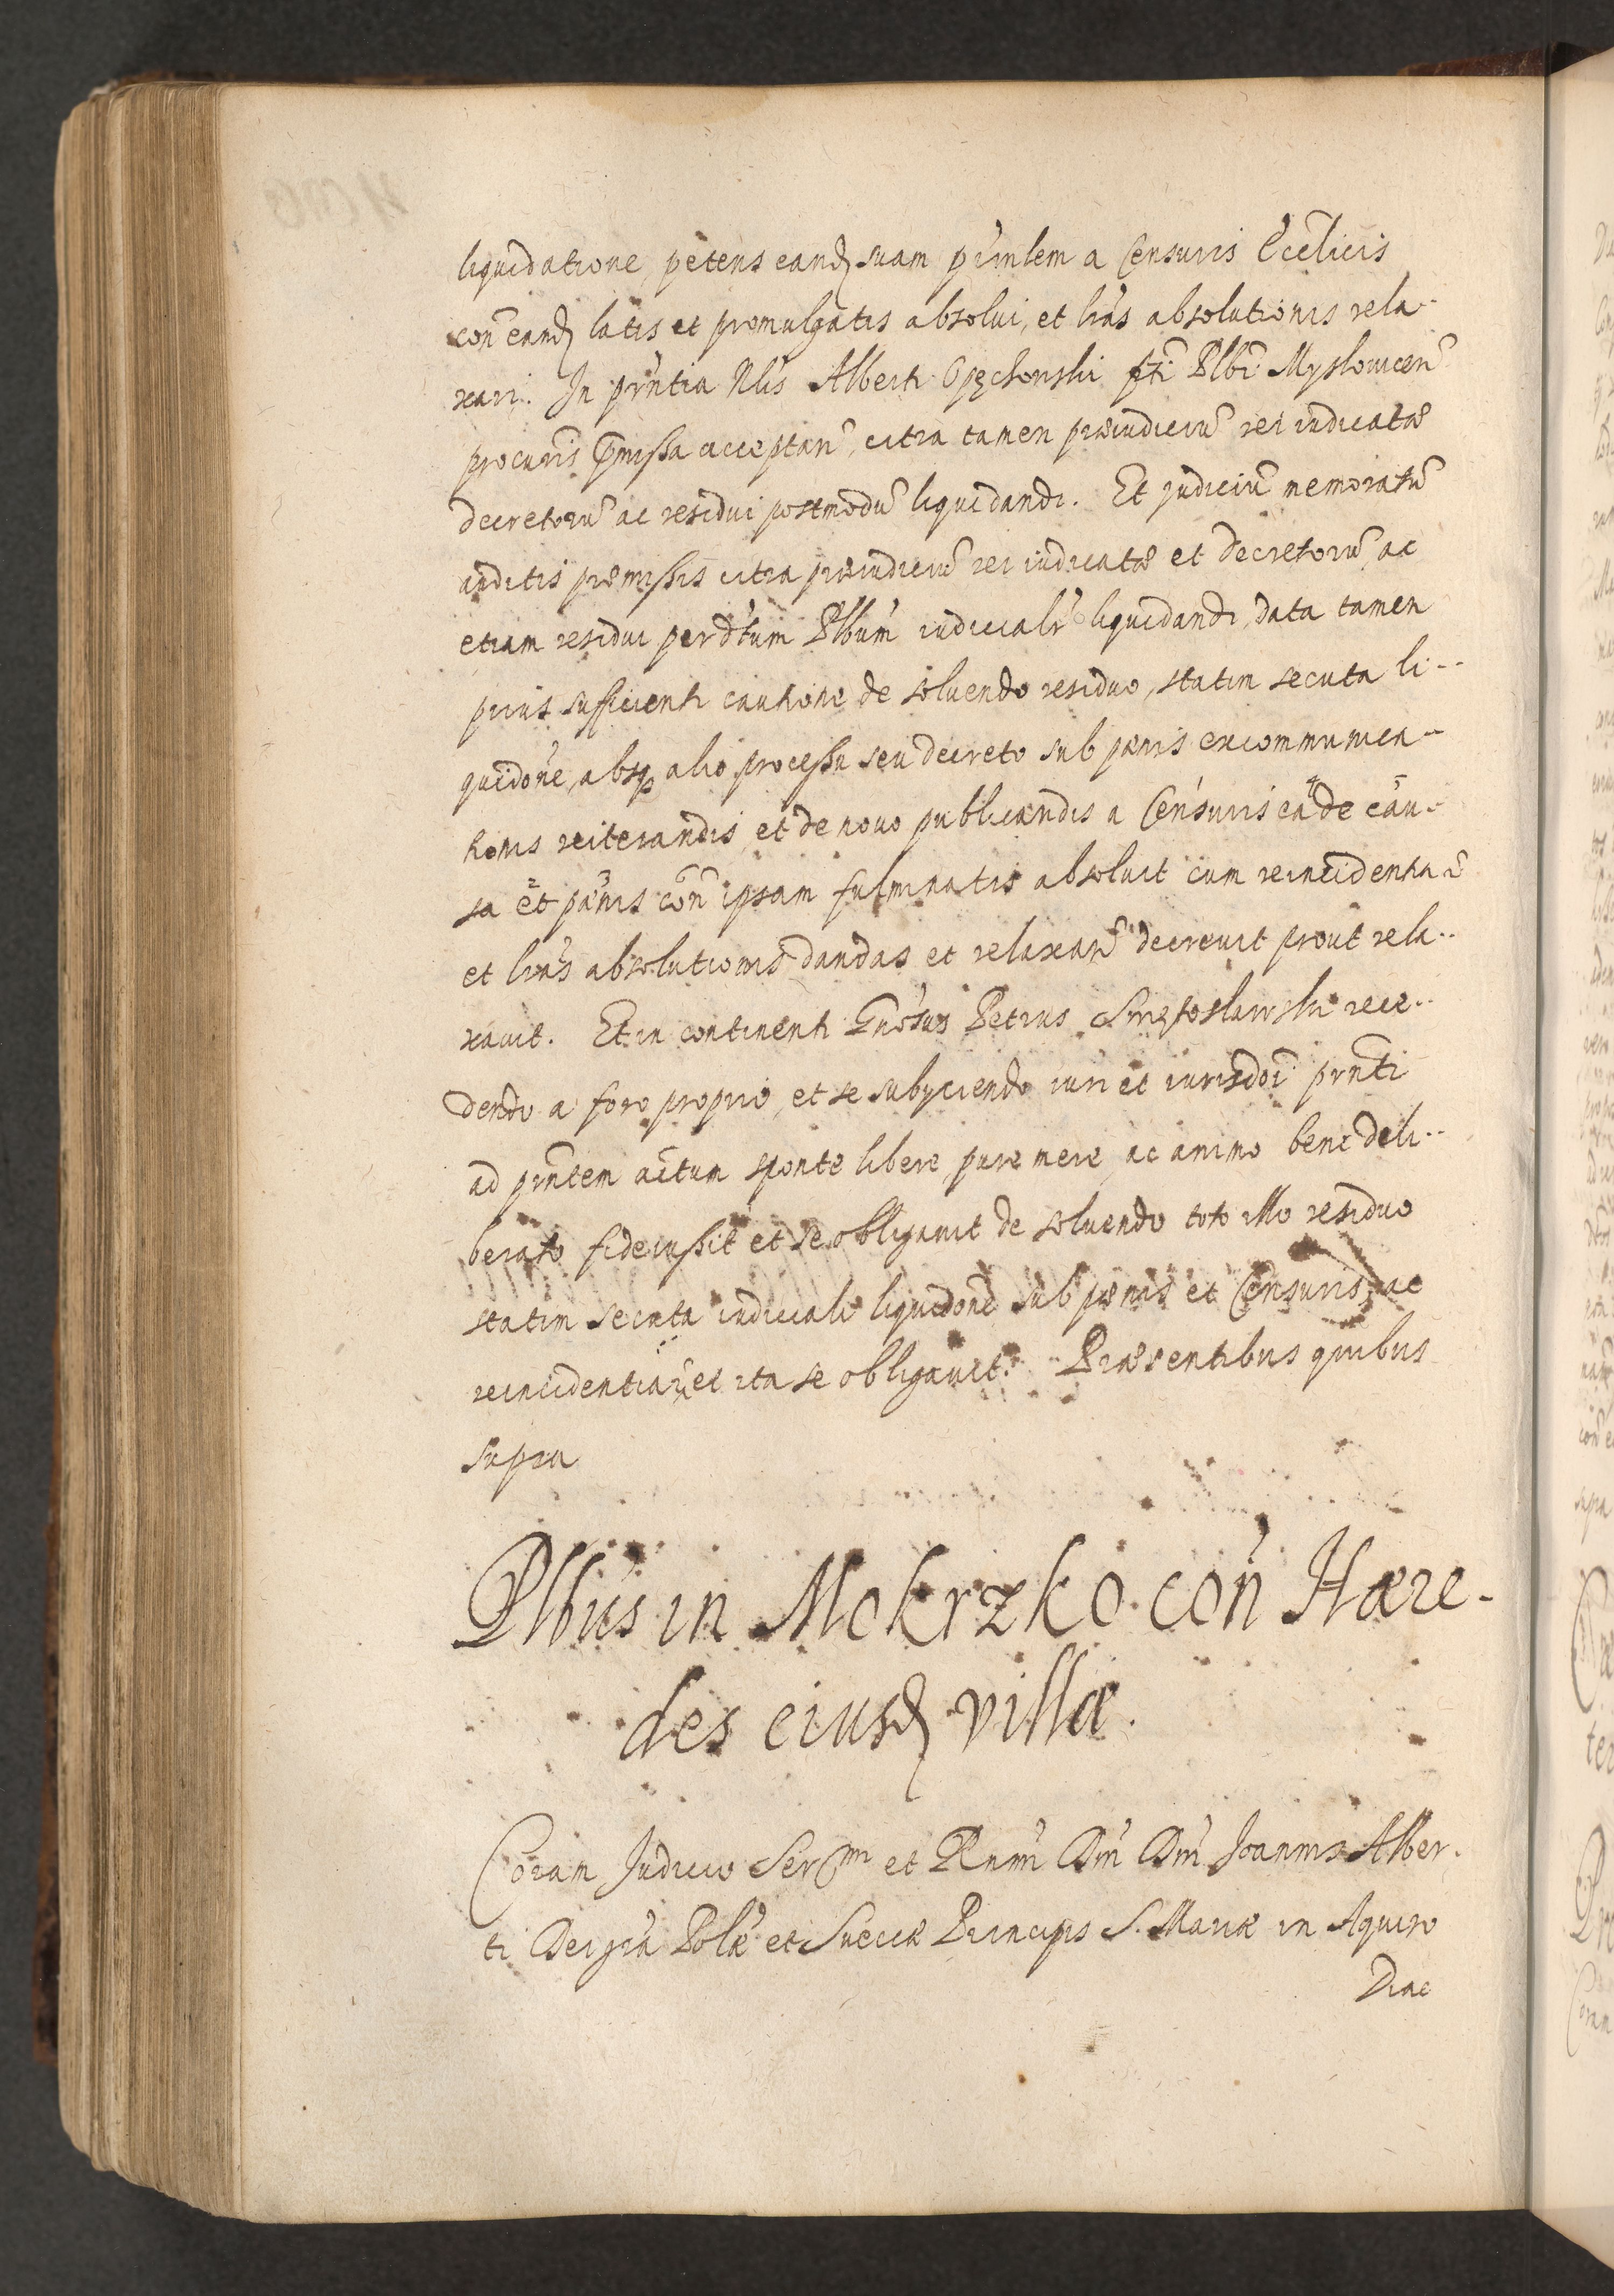 liquidatione, petens eand suam prinlem a Censuris Ecclicis
con eand latis et promulgatis absolui, et lras absolutionis rela-
xari. In prntia Nlis Alberti Opęchowski pti Plbi Mysłowicen
procuris pmissa acceptan, citra tamen præiudiciu rei iudicatæ
decretoru ac residui postmodu liquidandi. Et judiciu memoratu
auditis præmissis citra præiudiciu rei iudicatæ et decretoru, ac
etiam residui per dtum Plbum iudicialr liquidandi, data tamen
prius sufficienti cautione de soluendo residuo, statim secuta li--
quidone, absq alio processu seu decreto sub pænis excommunica-
tionis reiterandis, et de nouo publicandis a Censuris ea de cau-
sa et pænis con ipsam fulminatis absoluit cum reincidentia
et lras absolutionis dandas et relaxan decreuit prout rela--
xauit. Et in continenti Gnosus Petrus Swiętosławski rece--
dendo a foro proprio, et se subyciendo iuri et iurisdoi prnti
ad prntem actum sponte libere, pure mere, ac animo bene deli--
berato fideiussit et se obligauit de soluendo toto illo residuo
statim secuta iudiciali liquidone sub pænis et Censuris, ac
reincidentia, et ita se obligauit. Præsentibus quibus
supra
Plbus in Mokrzko con Hære-
des eiusd villæ.
Coram Judicio Sermi et Rnmi Dni Dni Joannis Alber-
ti Dei gra Polæ et Sueciæ Principis S. Mariæ in Aquiro
Diac